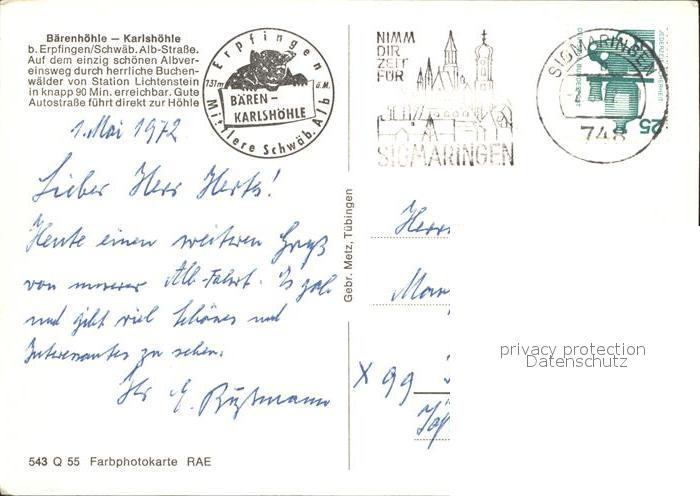 Bärenhöhle – Karlshöhle
b. Erpfingen/Schwäb. Alb-Straße.
Auf dem einzig schönen Albver-
einsweg durch herrliche Buchen-
wälder von Station Lichtenstein
in knapp 90 Min. erreichbar. Gute
Autostraße führt direkt zur Höhle
Erpfingen
ü.M.
BÄREN-
KARLSHÖHLE
Mittlere Schwäb. Alb
NIMM
DIR
ZEIT
FÜR
SIGMARINGEN
SIGMARINGEN
748
25
1. Mai 1972
Lieber Herr Hertz!
Heute einen weiteren Gruß
von unserer Alb-Fahrt. Es gab
und gibt viel Schönes und
Interessantes zu sehen.
Ihr E. Bußmann
Gebr. Metz, Tübingen
Herr
X 99
privacy protection
Datenschutz
543 Q 55 Farbphotokarte RAE